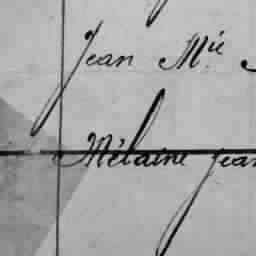 Jean Mie
Mélaine Jean